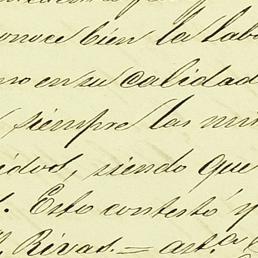 onoce bien la labo
mo en su calidad
siempre las mu
idos, siendo que
. Esto contestó y
Rivas.=art.a